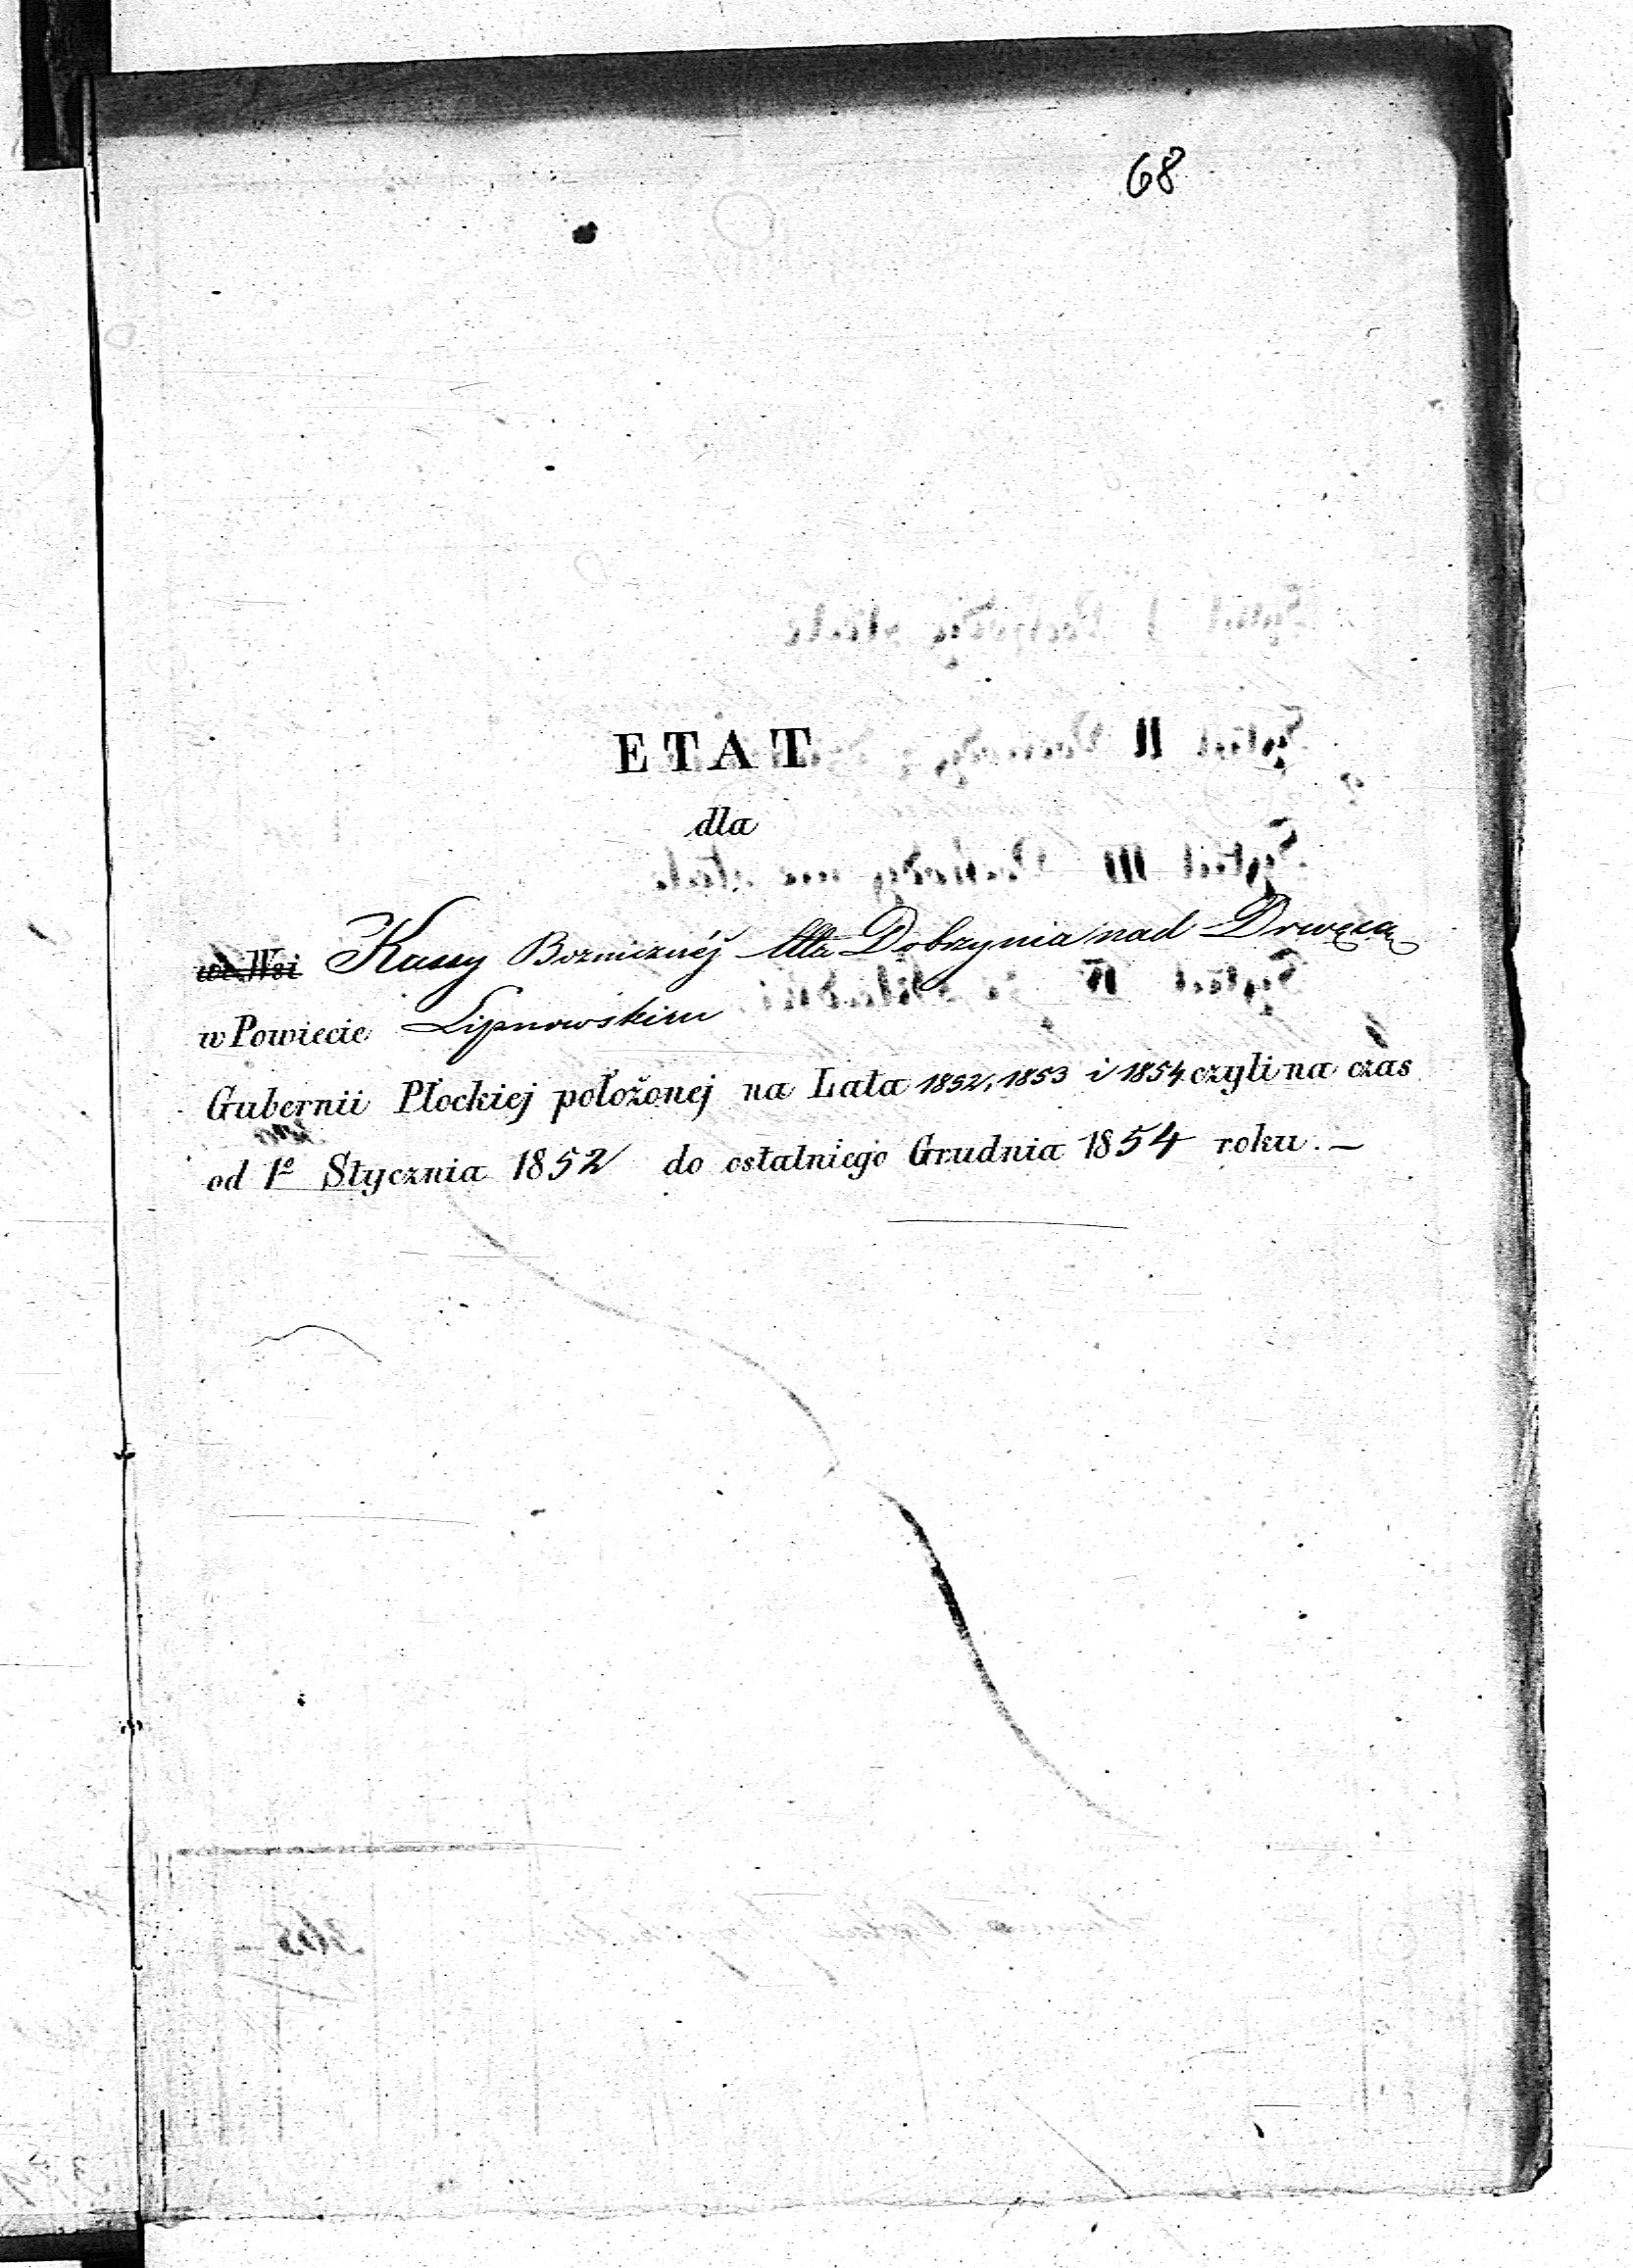 68
ETAT
dla
we Wsi Kassy Boznicznéj Mta Dobrzynia nad Drwęcą
w Powiecie Lipnowskim
Gubernii Płockiej położonej na Lata 1852, 1853 i 1854 czyli na czas
od 1º Stycznia 1852 do ostatniego Grudnia 1854 roku. —